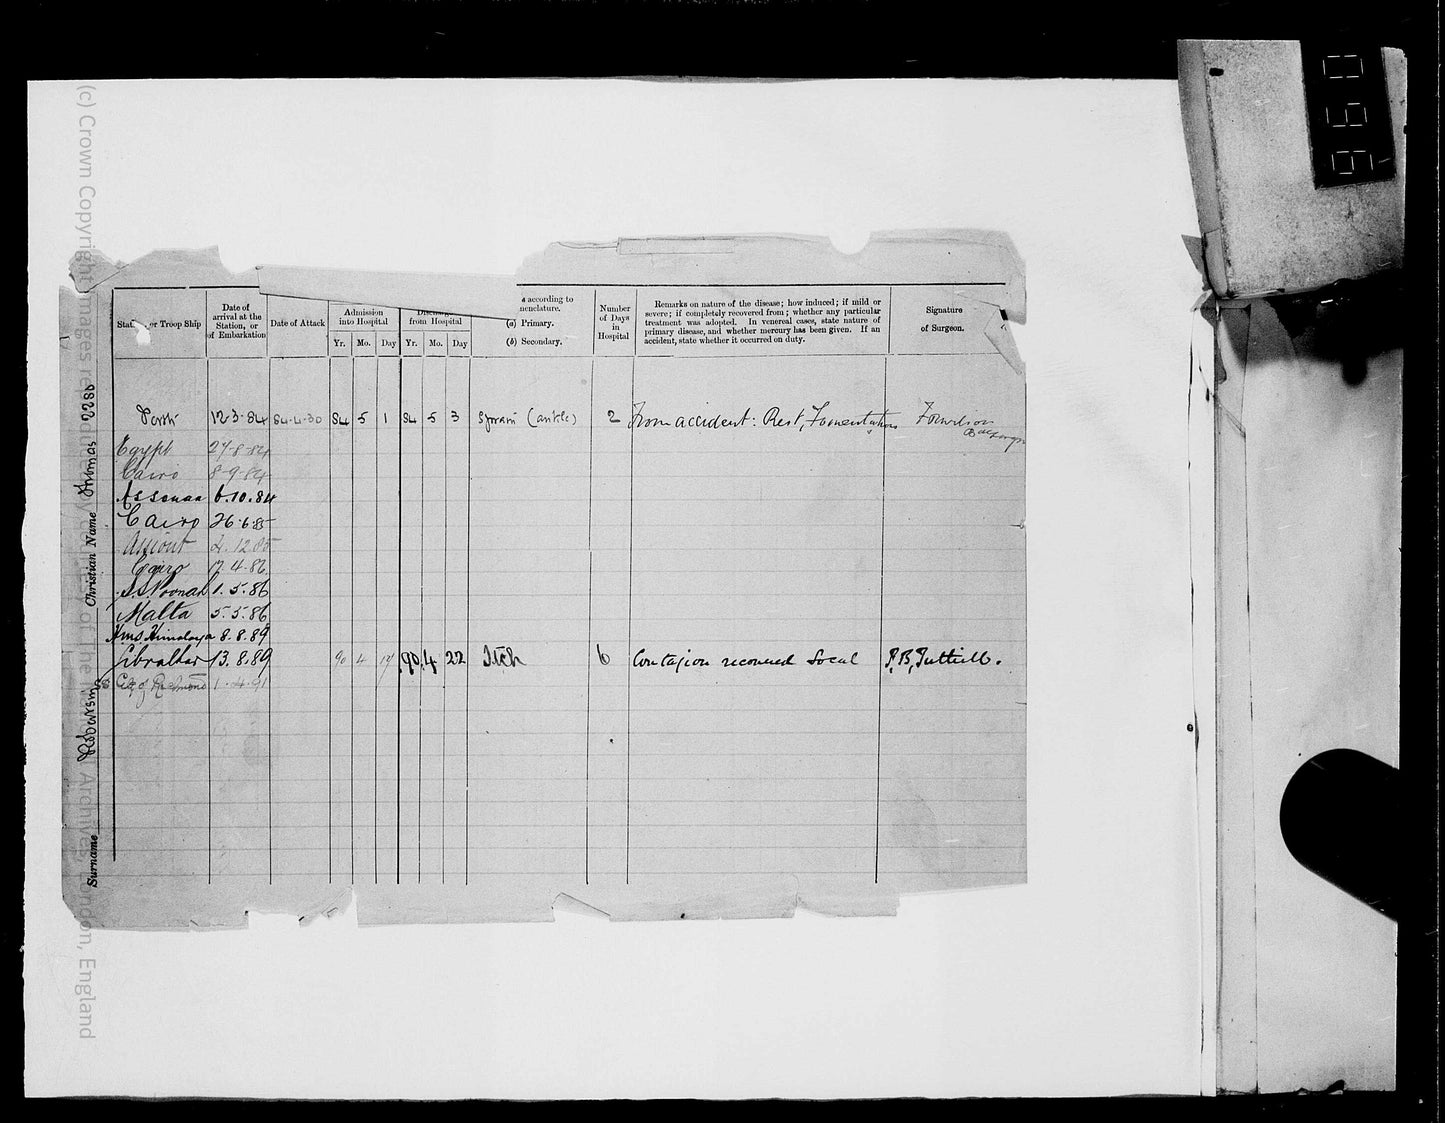 (c) Crown Copyright Images reproduced by courtesy of The National Archives, London, England
960
Surname Robertson Christian Name Thomas 2280
or Troop Ship
Date of arrival at the Station, or of Embarkation
Date of Attack
Admission into Hospital
Yr. Mo. Day
from Hospital
Yr. Mo. Day
according to
(a) Primary.
(b) Secondary.
Number of Days in Hospital
Remarks on nature of the disease; how induced; if mild or severe; if completely recovered from; whether any particular treatment was adopted. In venereal cases, state nature of primary disease, and whether mercury has been given. If an accident, state whether it occurred on duty.
Signature of Surgeon.
Perth 12-3-84 84-4-30 84 5 1 84 5 3 Sprain (ankle) 2 From accident: Rest, Fomentations
Egypt 27-8-84
Cairo 8-9-84
Assouan 6.10.84
Cairo 26.6.85
Assiout 2.12.85
Cairo 17.4.86
S.S. Poonah 1.5.86
Malta 5.5.86
Hms Himalaya 8.8.89
Gibraltar 13.8.89 90 4 17 90 4 22 Itch 6 Contagion recovered Local
SS City of Richmond 1.4.91